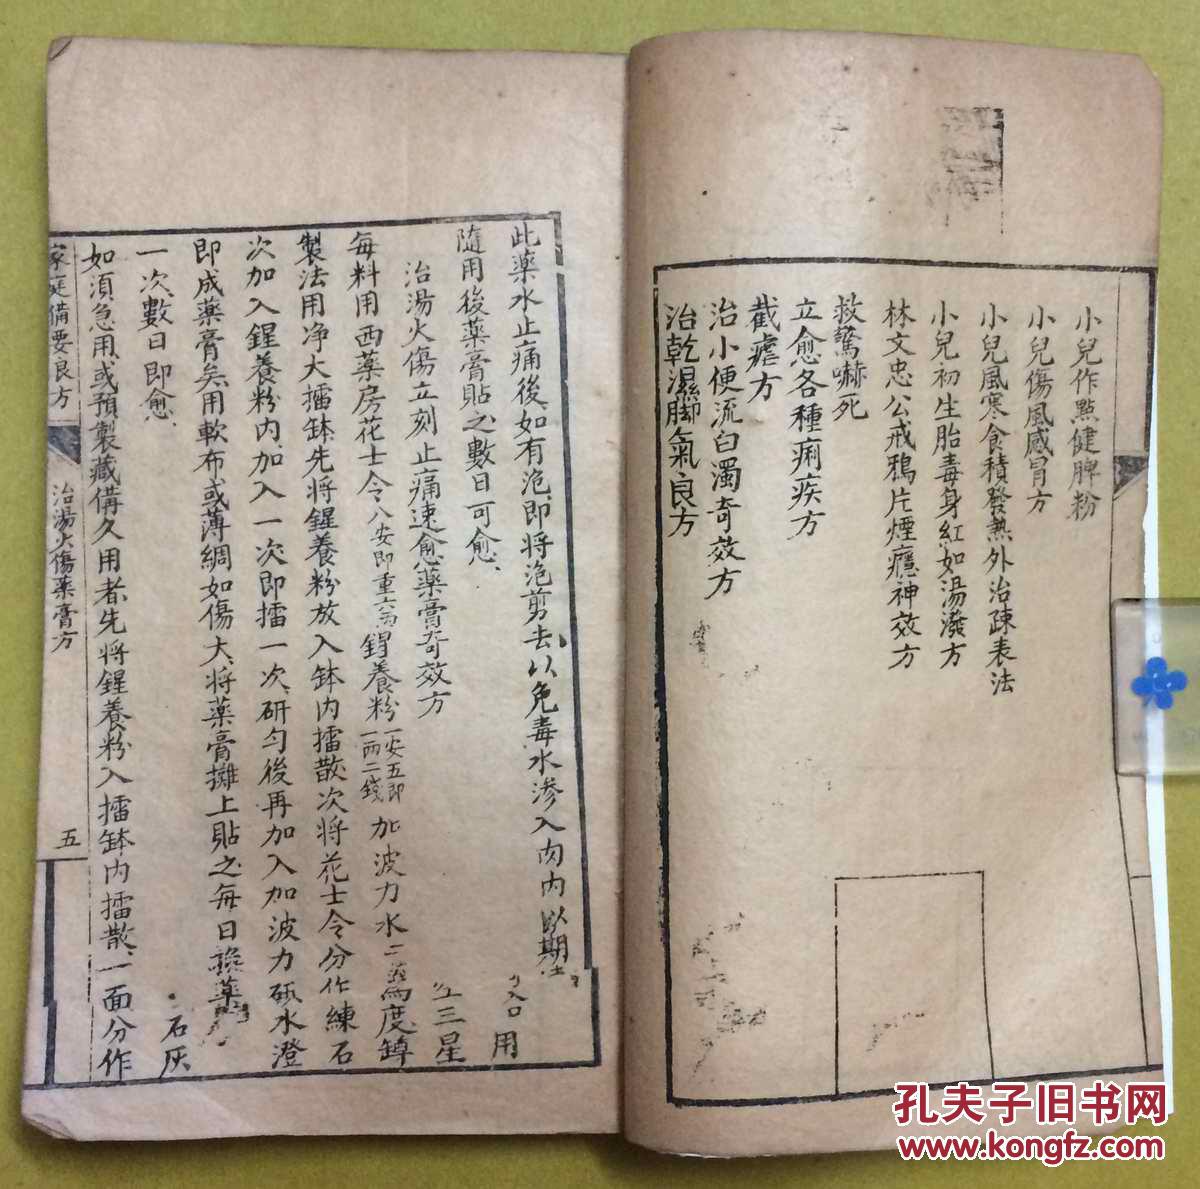 小兒作㸃健脾粉
小兒傷風感冒方
小兒風寒食積發熱外治疎表法
小兒初生胎毒身紅如湯潑方
林文忠公戒鴉片煙癮神效方
救驚嚇死
立愈各種痢疾方
截瘧方
治小便流白濁奇效方
治乾濕脚氣良方
此藥水止痛後如有泡即將泡剪去以免毒水滲入肉內以期
隨用後藥膏貼之數日可愈
治湯火傷立刻止痛速愈藥膏奇效方
每料用西藥房花士令八安即重六 養粉一安五即一兩二錢加波力水二 為度
製法用净大擂缽先將鍟養粉放入缽內擂散次將花士令分作練
次加入鍟養粉內加入一次即擂一次研勻後再加入加波力 水
即成藥膏矣用軟布或薄綢如傷大將藥膏攤上貼之每日換藥
一次數日即愈
如須急用或預製藏備久用者先將鍟養粉入擂缽內擂散一面分作
用
三星
罇
石
澄
石灰
家庭備要良方
治湯火傷藥膏方
五
孔夫子旧书网
www.kongfz.com